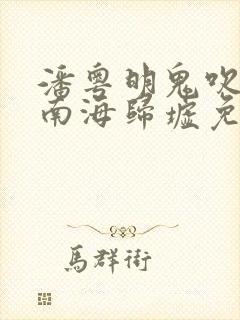 潘粤明鬼吹
南海歸墟免
馬群街